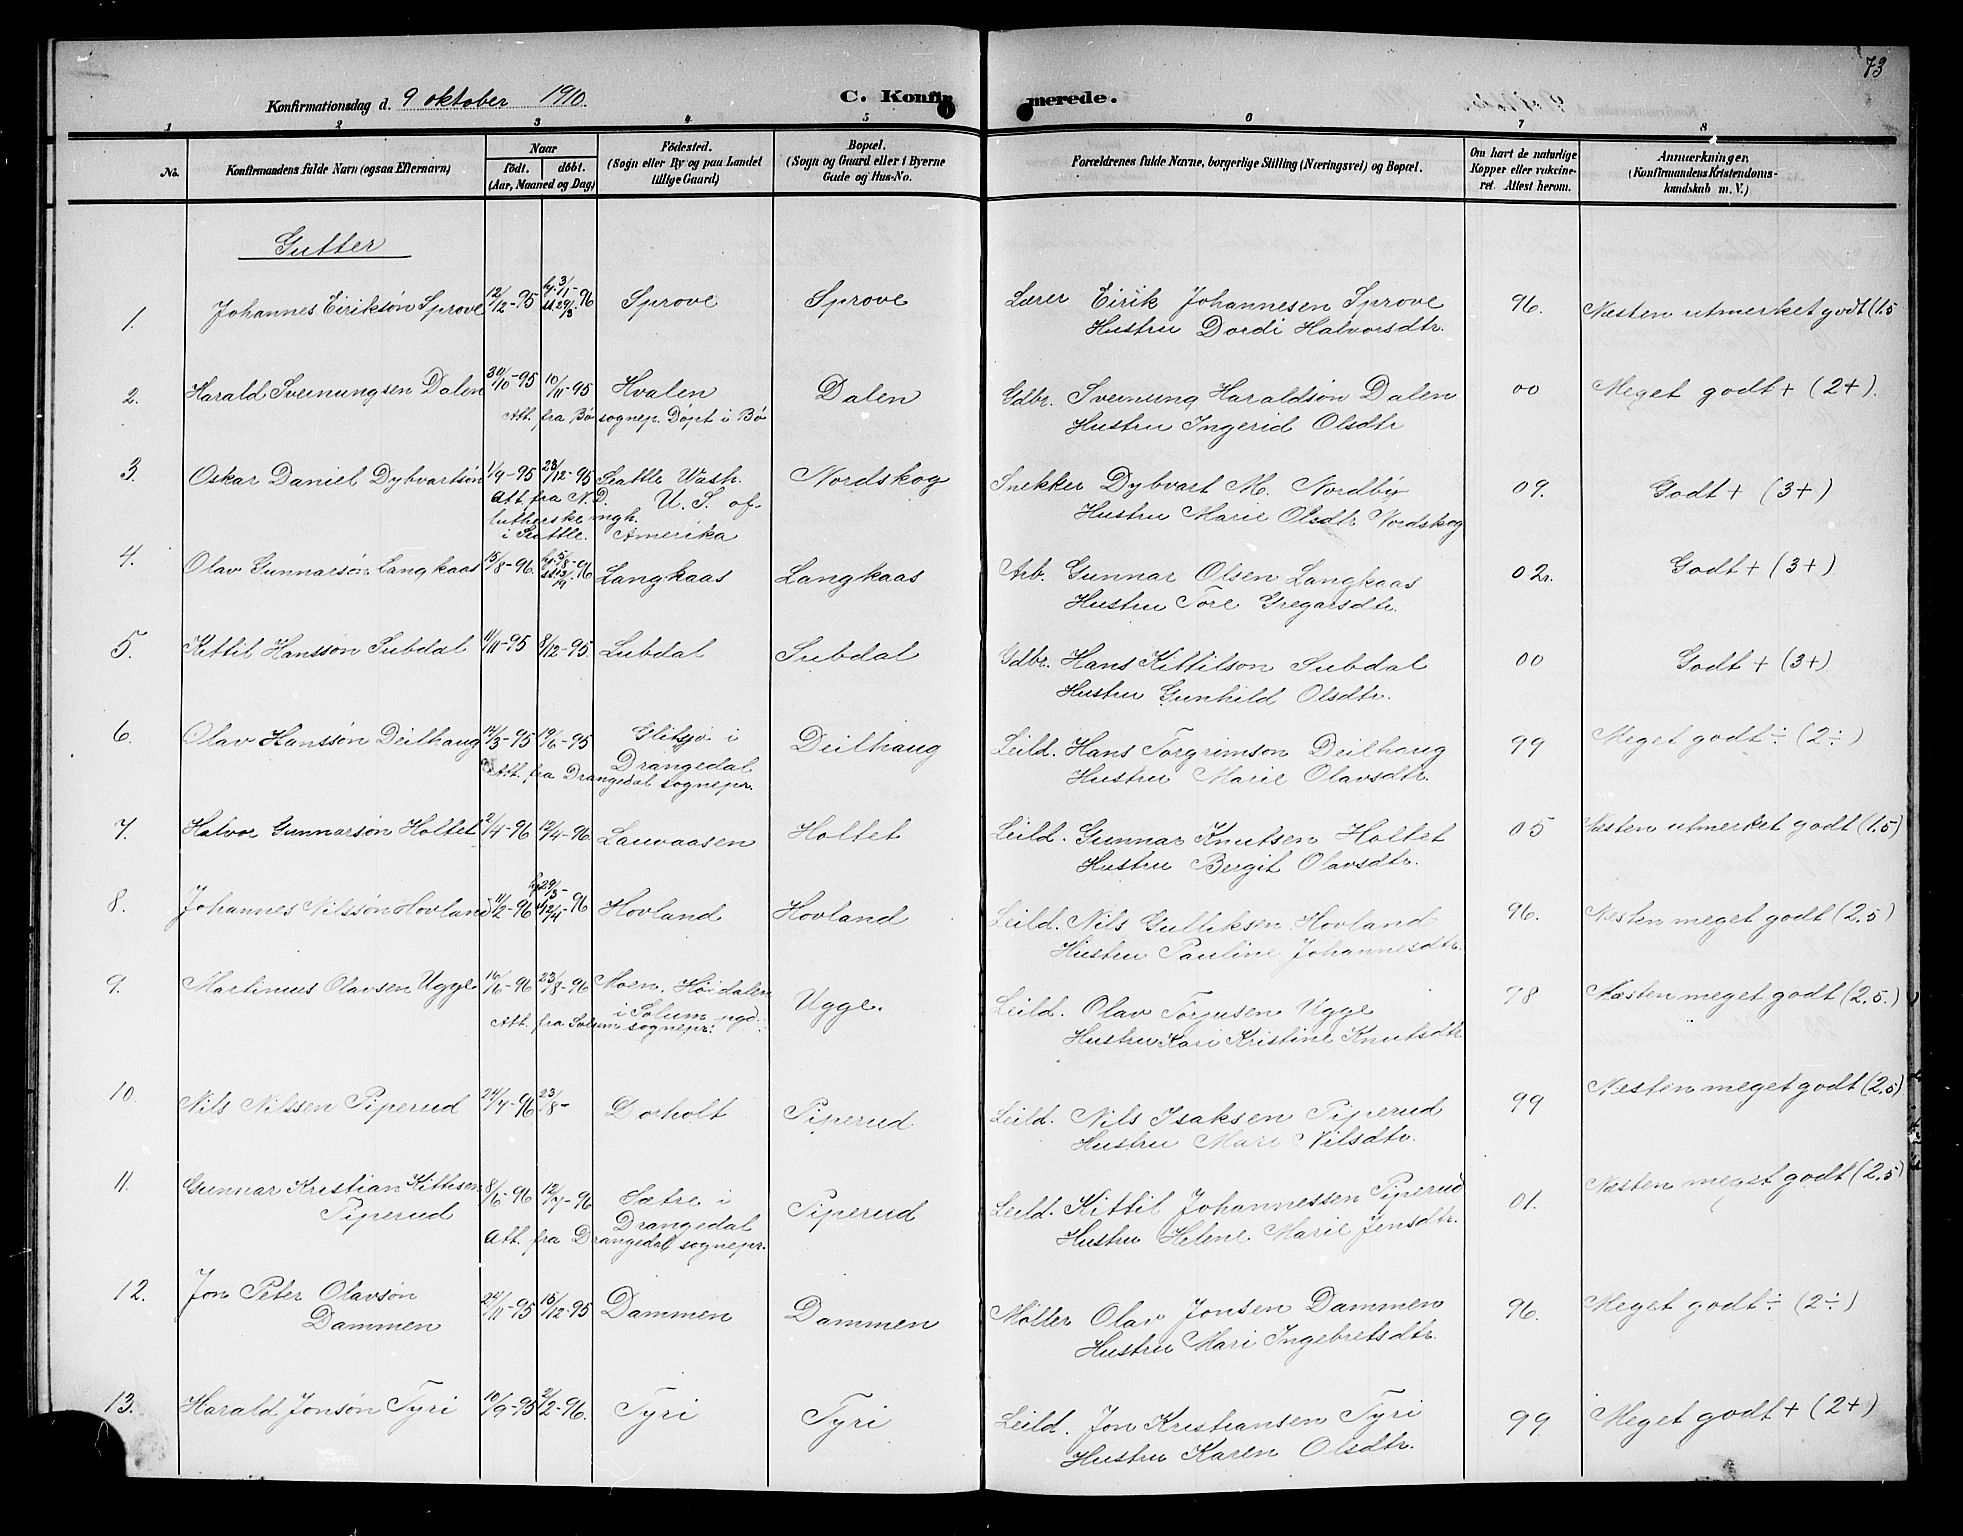 73
Konfirmationsdag d. 9 oktober 1910.
C. Konfirmerede.
1 2 3 4 5 6 7 8
No. Konfirmandens fulde Navn (ogsaa Efternavn) Naar født. døbt. (Aar, Maaned og Dag) Fødested. (Sogn eller By og paa Landet tillige Gaard) Bopæl. (Sogn og Gaard eller i Byerne Gade og Hus-No. Forældrenes fulde Navne, borgerlige Stilling (Næringsvei) og Bopæl. Om havt de naturlige Kopper eller vaccineret. Attest herom. Anmærkninger. (Konfirmandens Kristendomskundskab m. V.)
Gutter
1. Johannes Eiriksøn Sprove 12/12-95 hj. 3/1- st. 29/3-96 Sprove Sprove Lærer Eirik Johannesen Sprove 96. Næsten utmerket godt (1.5
Hustru Dordi Halvorsdtr.
2. Harald Sveinungsen Dalen 30/10-95 10/11-95 Hvalen Dalen Gdbr. Sveinung Haraldsøn Dalen 00 Meget godt + (2+).
Att. fra Bø sognep. Døpt i Bø
Hustru Ingerid Olsdtr
3. Oskar Daniel Dybvartsøn 1/9-95 23/12-95 Seattle Wash. Nordskog Snekker Dybvart M. Nordbø 09. Godt + (3+)
Att. fra N.D. U. S. of
lutherske mgh. Hustru Marie Olsdtr Nordskog
i Seattle. Amerika
4. Olav Gunnarsøn Langkaas 15/8-96. hj. 5/8- st. 13/9-96 Langkaas Langkaas Arb. Gunnar Olsen Langkaas 02. Godt + (3+)
Hustru Tore Gregarsdtr.
5. Kittil Hanssøn Subdal 11/11-95 8/12-95 Lubdal Subdal Gdbr. Hans Kittilson Subdal 00 Godt + (3+)
Hustru Gunhild Olsdtr.
6. Olav Hanssøn Deilhaug 14/3-95 19/6-95 Glitsjø i Deilhaug Leild. Hans Torgrimson Deilhaug 99 Meget godt ÷ (2÷)
Drangedal
Att. fra Drangedal sognepr. Hustru Marie Olavsdtr.
7. Halvor Gunnarsøn Holtet 2/4-96 12/4-96 Lauvaasen Holtet Leild. Gunnar Knutsen Holtet 05 Næsten utmerket godt (1.5)
Hustru Bergit Olavsdtr.
8. Johannes Nilssøn Hovland 11/2-96 29/3- 12/4-96 Hovland Hovland Leild. Nils Gulliksen Hovland 96. Næsten meget godt (2.5)
Hustru Pauline Johannesdtr.
9. Martinius Olavsen Ugge 16/6-96 23/8-96 Moen, Høidalen Ugge. Leild. Olav Torjusen Ugge 98 Næsten meget godt (2.5.)
i Solum pgd.
Att. fra Solum sognepr. Hustru Kari Kristine Knutsdtr.
10. Nils Nilssen Piperud 24/7-96 23/8- Dorholt Piperud Leild. Nils Isaksen Piperud 99 Næsten meget godt (2,5)
Hustru Mari Nilsdtr.
11. Gunnar Kristian Kittilsen 8/6-96 12/7-96 Sætre i Piperud Leild. Kittil Johannessen Piperud 01. Næsten meget godt (2,5)
Piperud Drangedal
Att. fra Drangedal sognepr. Hustru Helene Marie Jensdtr.
12. Jon Peter Olavsøn 24/11-95 15/12-95 Dammen Dammen Møller Olav Jonsen Dammen 96. Meget godt ÷ (2÷)
Dammen Hustru Mari Ingebretsdtr.
13. Harald Jonsøn Tyri 10/9-95 2/2-96. Tyri Tyri Leild. Jon Kristiansen Tyri 99 Meget godt + (2+)
Hustru Karen Olsdtr.